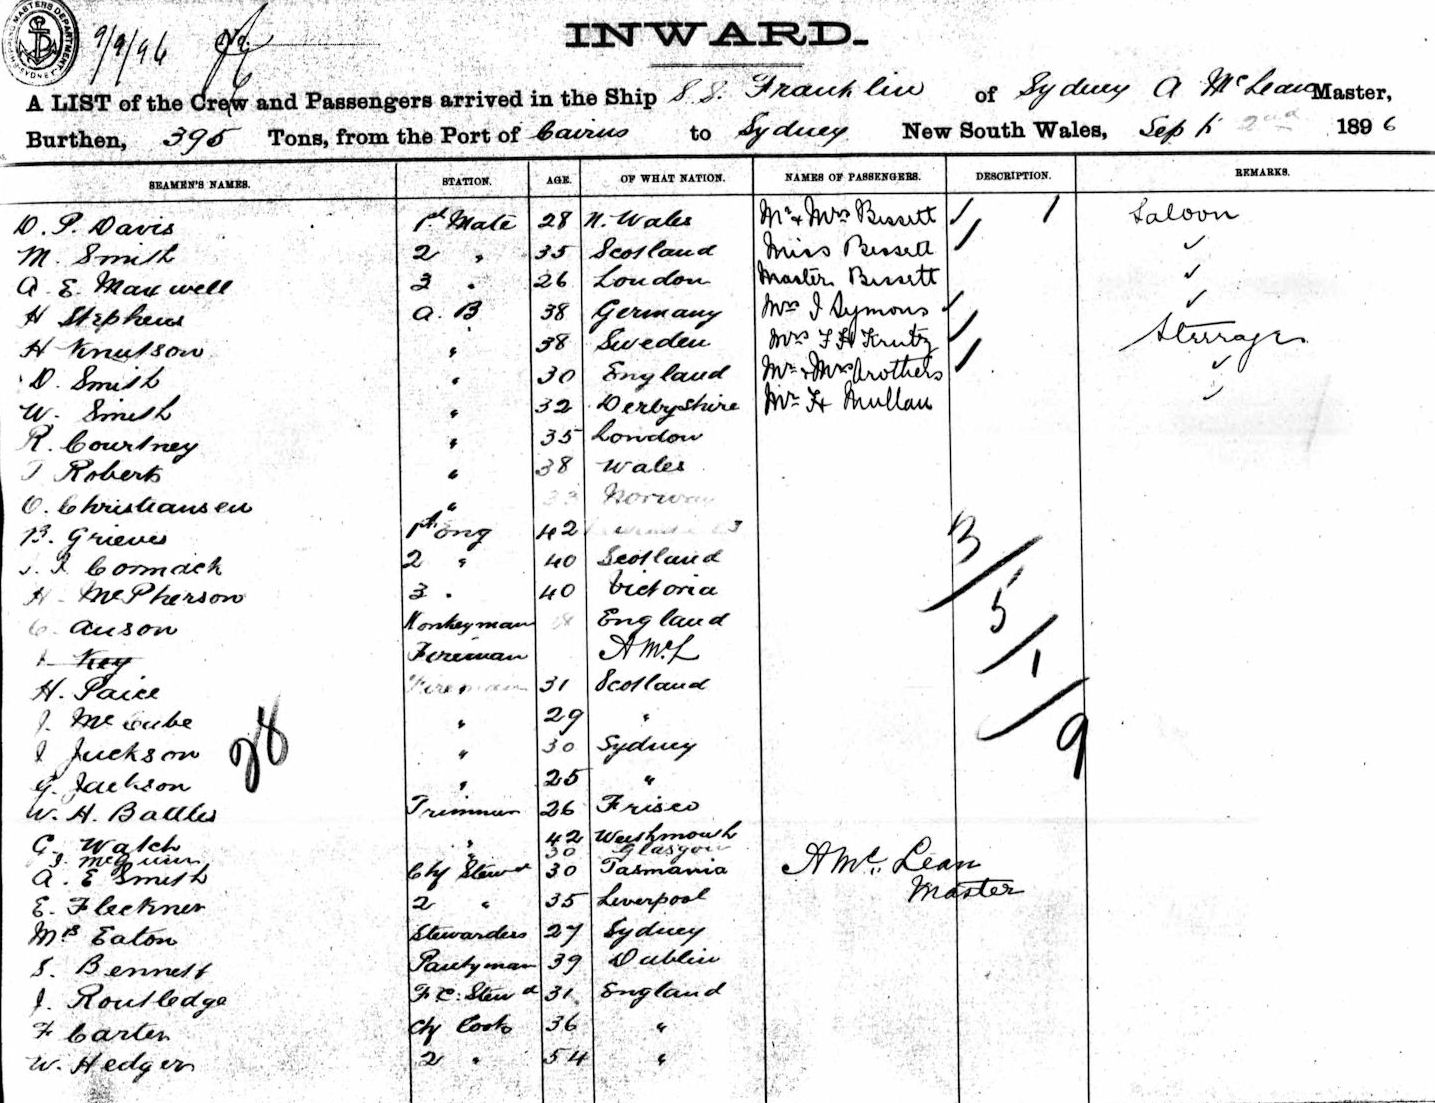 MASTERS DEPARTMENT
SYDNEY
9/9/96
INWARD.
A LIST of the Crew and Passengers arrived in the Ship S.S. Franklin of Sydney A McLean Master,
Burthen, 395 Tons, from the Port of Cairns to Sydney New South Wales, Sept 2nd 1896
SEAMEN'S NAMES. STATION. AGE. OF WHAT NATION. NAMES OF PASSENGERS. DESCRIPTION. REMARKS.
D. P. Davis 1st Mate 28 N. Wales Mr & Mrs Bissett 1 Saloon
M. Smith 2 " 35 Scotland Miss Bissett
A. E. Maxwell 3 " 26 London Master Bissett
H Stephens A. B 38 Germany Mrs J Symons
H Knutson " 38 Sweden Mrs F H Krutz Steerage
D. Smith " 30 England Mr & Mrs Brothers
W. Smith " 32 Derbyshire Mr H Mullan
R. Courtney " 35 London
T Roberts " 38 Wales
O. Christiansen " 33 Norway
B. Grieves 1st Eng 42
Cormack 2 " 40 Scotland
H. McPherson 3 " 40 Victoria
C. Anson Donkeyman England
Key Fireman A McL
H. Paice Fireman 31 Scotland
J. McCube " 29 "
J Juckson " 30 Sydney
G. Jackson " 25 "
W. H. Battles Trimmer 26 Frisco
G. Walch " 42
J. McGuinn " 30 Glasgow
A. E Smith Chf Stewd 30 Tasmania
E. Fleckner 2 " 35 Liverpool
Mrs Eaton Stewardess 27 Sydney
S. Bennett Pantryman 39 Dublin
J. Routledge F. C. Stewd 31 England
F Carter Chf Cook 36 "
W. Hedger 2 " 54 "
28
3/5/1/9
A McLean
Master